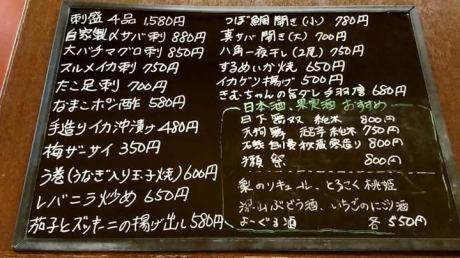 刺盛 4品 1,580円
自家製〆サバ刺 880円
大バチマグロ刺 850円
スルメイカ刺 750円
たこ足刺 700円
なまこポン酢 580円
手造りイカ沖漬け 480円
梅ザーサイ 350円
う巻(うなぎ入り玉子焼) 600円
レバニラ炒め 650円
茄子とズッキーニの揚げ出し 580円
つぼ鯛開き(小) 780円
真サバ開き(大) 700円
八角一夜干し(2尾) 750円
するめいか焼 650円
イカゲソ揚げ 500円
きむちゃんの旨ダレ手羽度 680円
日本酒、果実酒 おすすめ
日下無双 純米 800円
天狗舞 純米 750円
秘蔵 造り 800円
獺祭 800円
梨のリキュール、とろこく桃姫
深山ぶどう酒、いちごのにごり酒
よーぐる酒 各550円